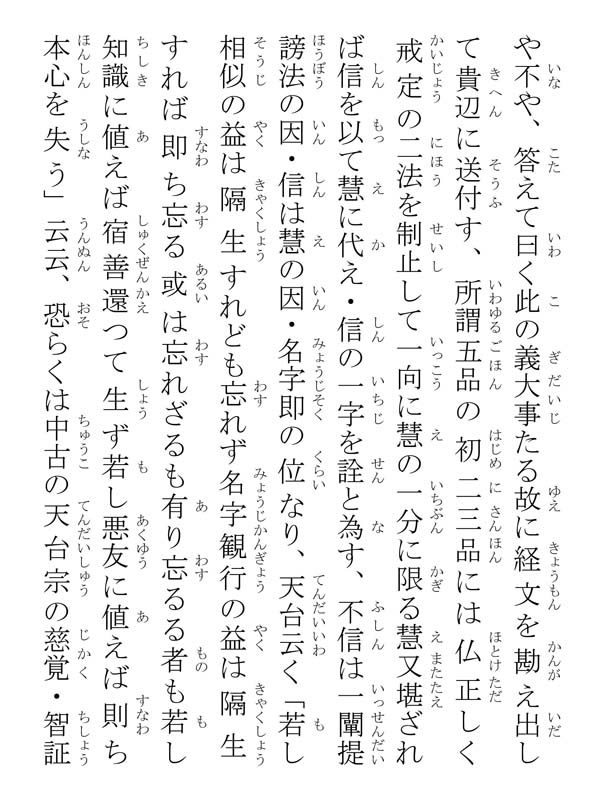 や不や、答えて曰く此の義大事たる故に経文を勘え出し
て貴辺に送付す、所謂五品の初二三品には仏正しく
戒定の二法を制止して一向に慧の一分に限る慧又堪ざれ
ば信を以て慧に代え・信の一字を詮と為す、不信は一闡提
謗法の因・信は慧の因・名字即の位なり、天台云く「若し
相似の益は隔生すれども忘れず名字観行の益は隔生
すれば即ち忘る或は忘れざるも有り忘るる者も若し
知識に値えば宿善還つて生ず若し悪友に値えば則ち
本心を失う」云云、恐らくは中古の天台宗の慈覚・智証